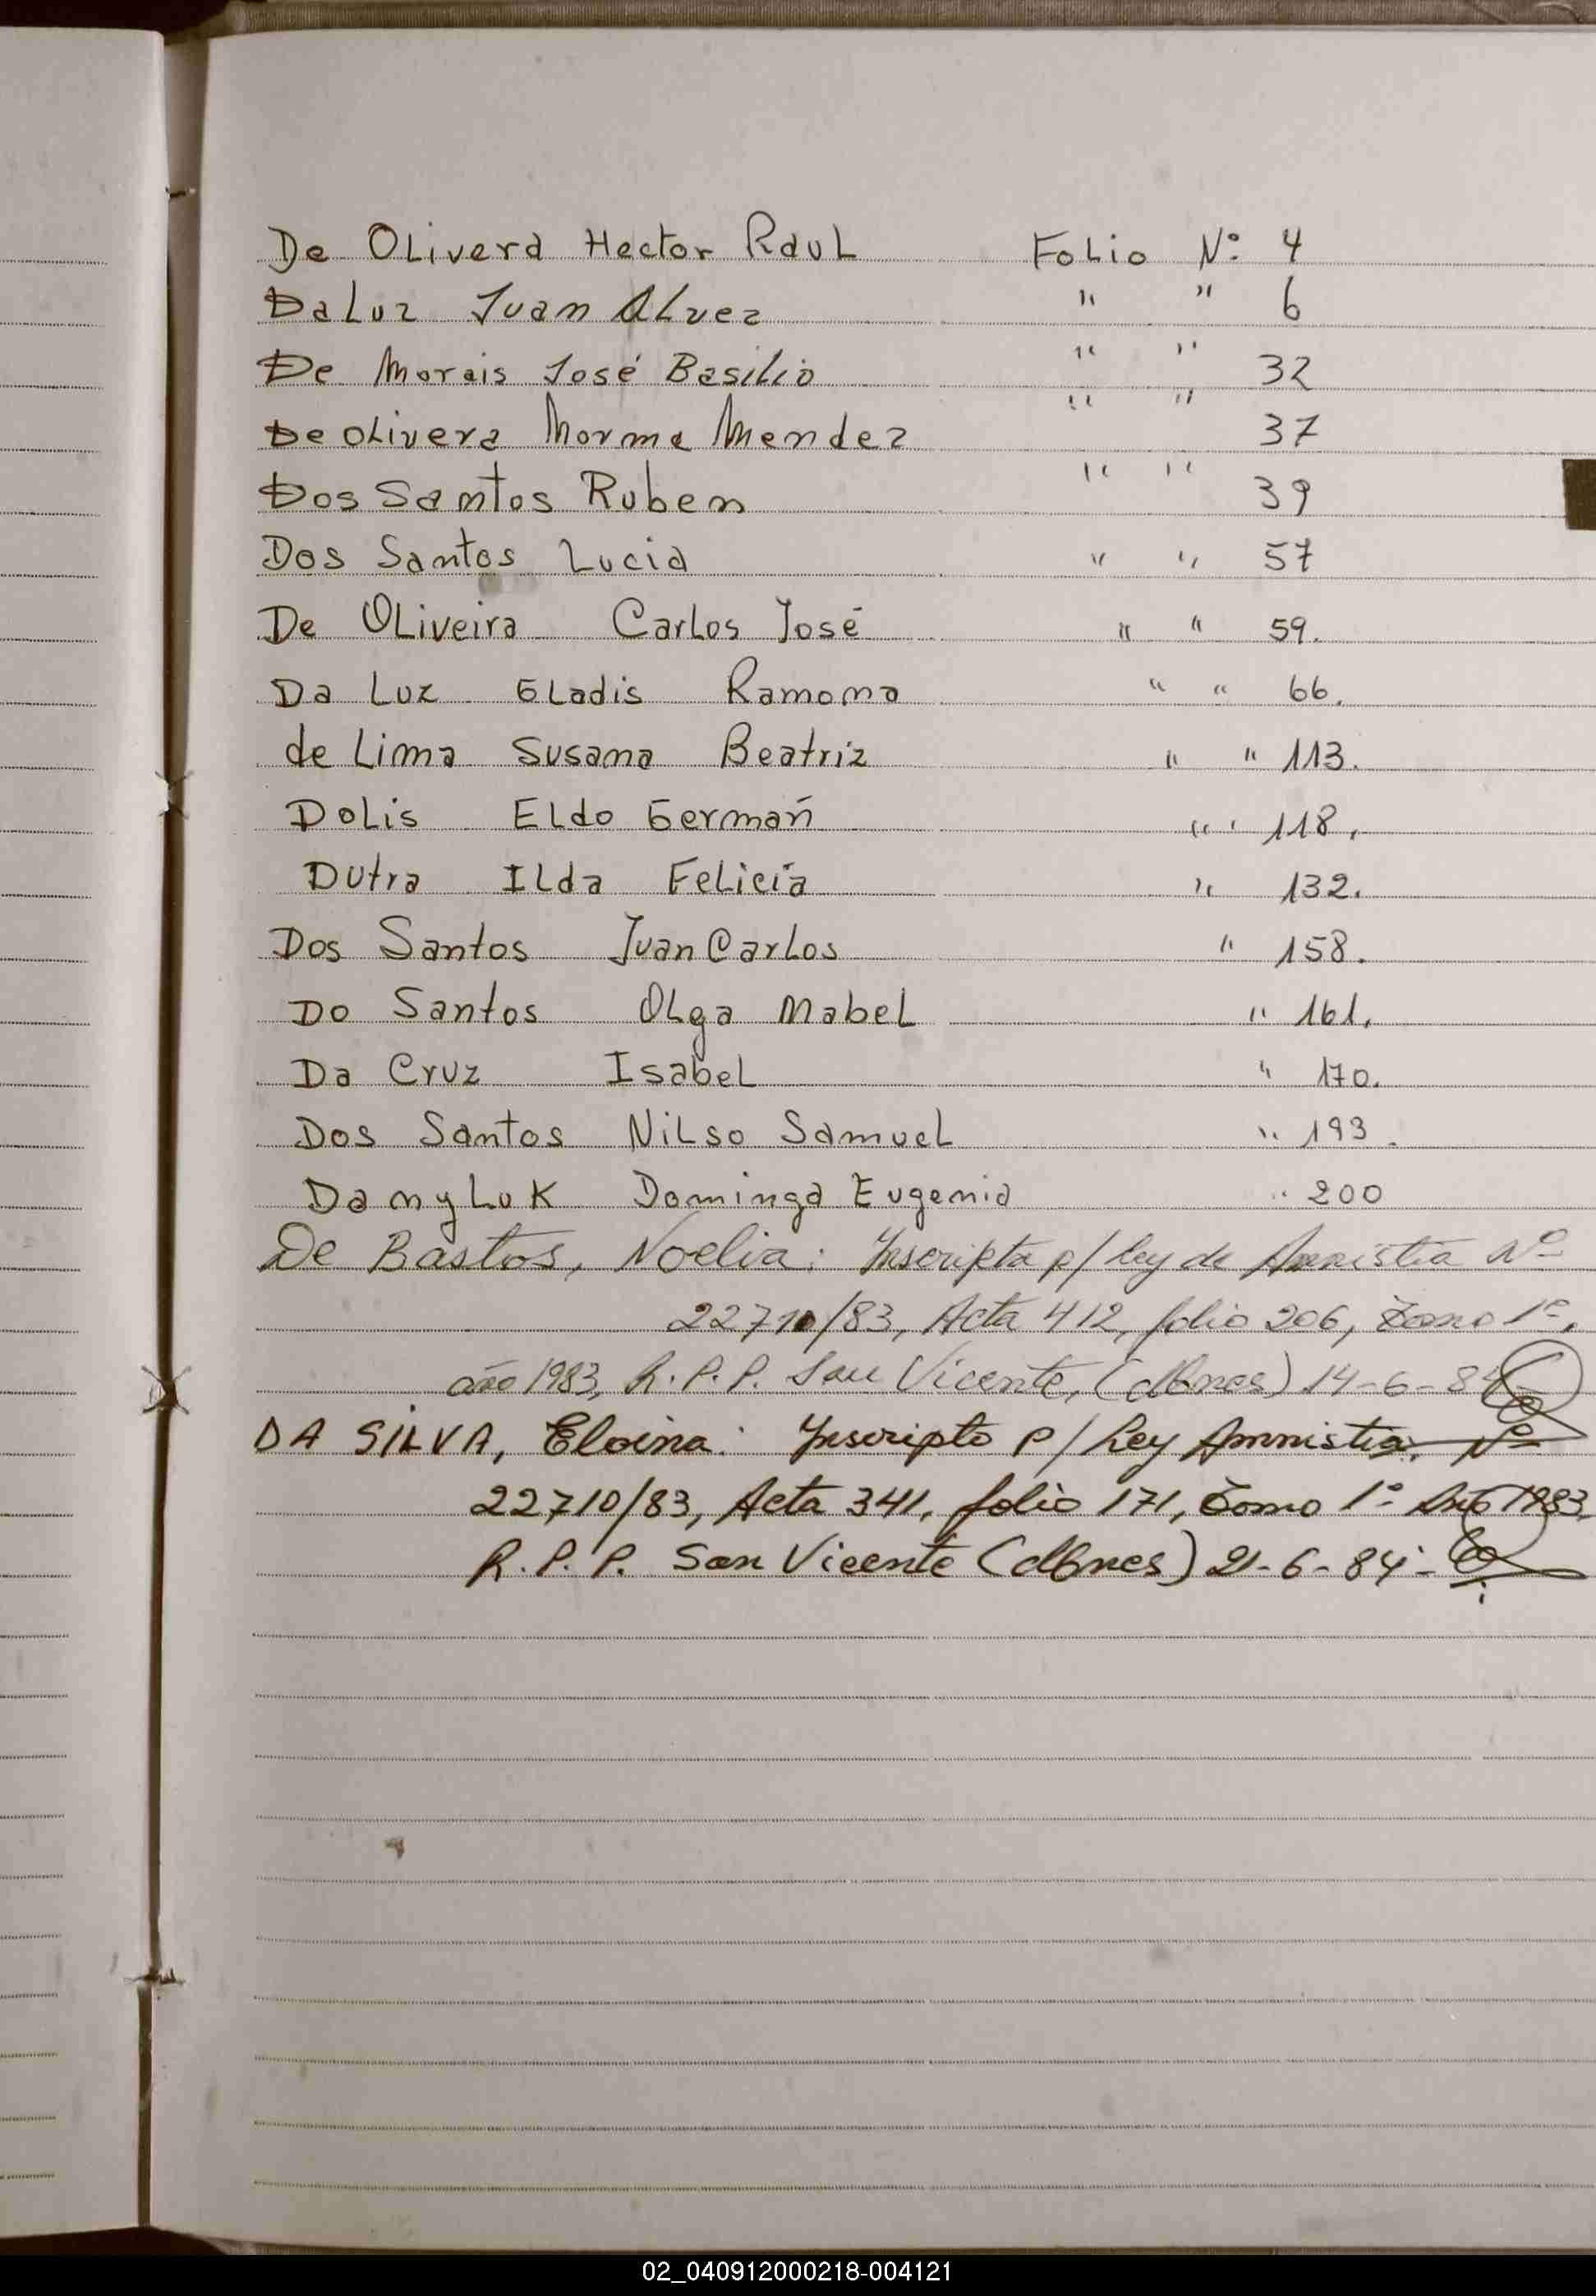 De Olivera Hector Raul Folio Nº 4
Da Luz Juan Alvez " " 6
De Morais José Basilio " " 32
De Olivera Norma Mendez " " 37
Dos Santos Ruben " " 39
Dos Santos Lucia " " 57
De Oliveira Carlos José " " 59.
Da Luz Gladis Ramona " " 66.
de Lima Susana Beatriz " " 113.
Dolis Eldo Germań " " 118.
Dutra Ilda Felicia " 132.
Dos Santos Juan Carlos " 158.
Do Santos Olga Mabel " 161.
Da Cruz Isabel " 170.
Dos Santos Nilso Samuel " 193.
Danyluk Dominga Eugenia " 200
De Bastos, Noelia: Inscripta p/ ley de Amnistia Nº
22710/83, Acta 412, folio 206, Tomo 1º,
año 1983, R.P.P. San Vicente, (Mnes) 14-6-84
DA SILVA, Eloina: Inscripto p/ Ley Amnistia. Nº
22710/83, Acta 341, folio 171, Tomo 1º Año 1983.
R.P.P. San Vicente (Mnes) 21-6-84.-
02_040912000218-004121